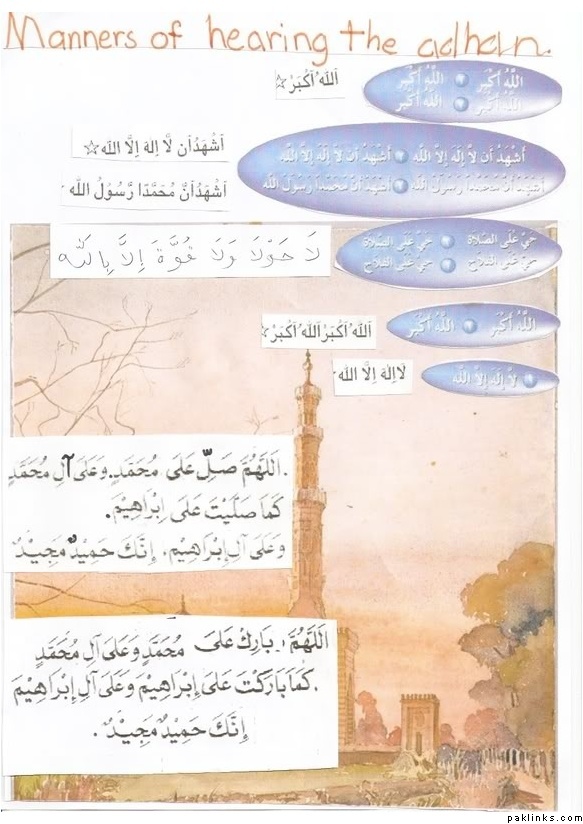 Manners of hearing the adhan.
اَللّٰهُ اَكْبَرُ ☆
اللَّهُ أَكْبَر اللَّهُ أَكْبَر
اللَّهُ أَكْبَر اللَّهُ أَكْبَر
اَشْهَدُ اَن لَّا اِلٰهَ اِلَّا اللّٰه ☆
اَشْهَدُ اَنَّ مُحَمَّدًا رَّسُوْلُ اللّٰه
أَشْهَدُ أَن لَا إِلَهَ إِلَّا اللَّه أَشْهَدُ أَن لَا إِلَهَ إِلَّا اللَّه
أَشْهَدُ أَنَّ مُحَمَّدًا رَسُولُ اللَّه أَشْهَدُ أَنَّ مُحَمَّدًا رَسُولُ اللَّه
لَا حَوْلَا وَلَا قُوَّةَ اِلَّا بِاللّٰه
حَيَّ عَلَى الصَّلَاة حَيَّ عَلَى الصَّلَاة
حَيَّ عَلَى الفَلَاح حَيَّ عَلَى الفَلَاح
اَللّٰهُ اَكْبَرُ اَللّٰهُ اَكْبَرُ ☆
اللَّهُ أَكْبَر اللَّهُ أَكْبَر
لَا اِلٰهَ اِلَّا اللّٰه
لَا إِلَهَ إِلَّا اللَّه
اَللَّهُمَّ صَلِّ عَلَى مُحَمَّدٍ وَعَلَى آلِ مُحَمَّدٍ
كَمَا صَلَّيْتَ عَلَى إِبْرَاهِيْمَ.
وَعَلَى آلِ إِبْرَاهِيْمَ. إِنَّكَ حَمِيْدٌ مَجِيْدٌ
اللَّهُمَّ بَارِكْ عَلَى مُحَمَّدٍ وَعَلَى آلِ مُحَمَّدٍ
كَمَا بَارَكْتَ عَلَى إِبْرَاهِيْمَ وَعَلَى آلِ إِبْرَاهِيْمَ.
إِنَّكَ حَمِيْدٌ مَجِيْدٌ.
paklinks.com